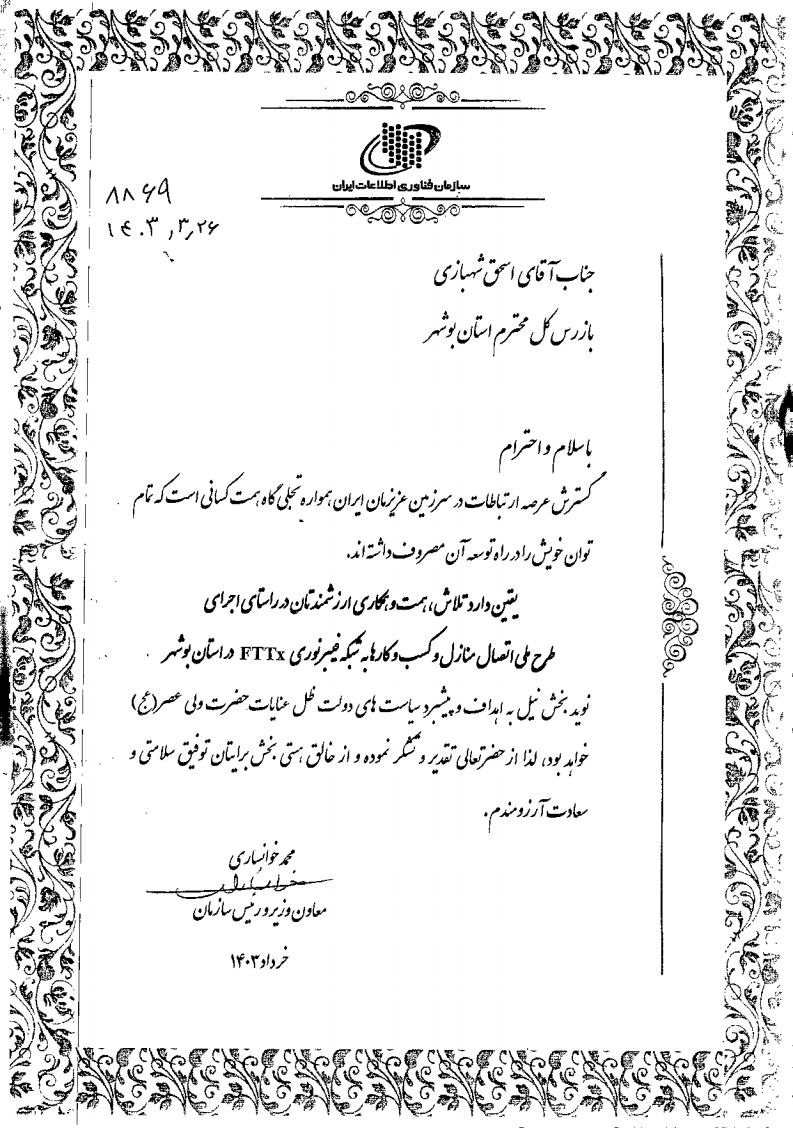 سازمان فناوری اطلاعات ایران
۸۸۶۹
۱۴۰۳٫۳٫۲۶
جناب آقای اسحق شهبازی
بازرس کل محترم استان بوشهر
باسلام و احترام
گسترش عرصه ارتباطات در سرزمین عزیزمان ایران همواره تجلی گاه همت کسانی است که تمام
توان خویش را در راه توسعه آن مصروف داشته اند.
یقین دارد تلاش، همت و همکاری ارزشمندتان در راستای اجرای
طرح ملی اتصال منازل و کسب و کارها به شبکه فیبرنوری FTTx در استان بوشهر
نوید بخش نیل به اهداف و پیشبرد سیاست های دولت ظل عنایات حضرت ولی عصر(عج)
خواهد بود، لذا از حضرتعالی تقدیر و تشکر نموده و از خالق هستی بخش برایتان توفیق سلامتی و
سعادت آرزومندم.
محمد خوانساری
معاون وزیر و رئیس سازمان
خرداد ۱۴۰۳